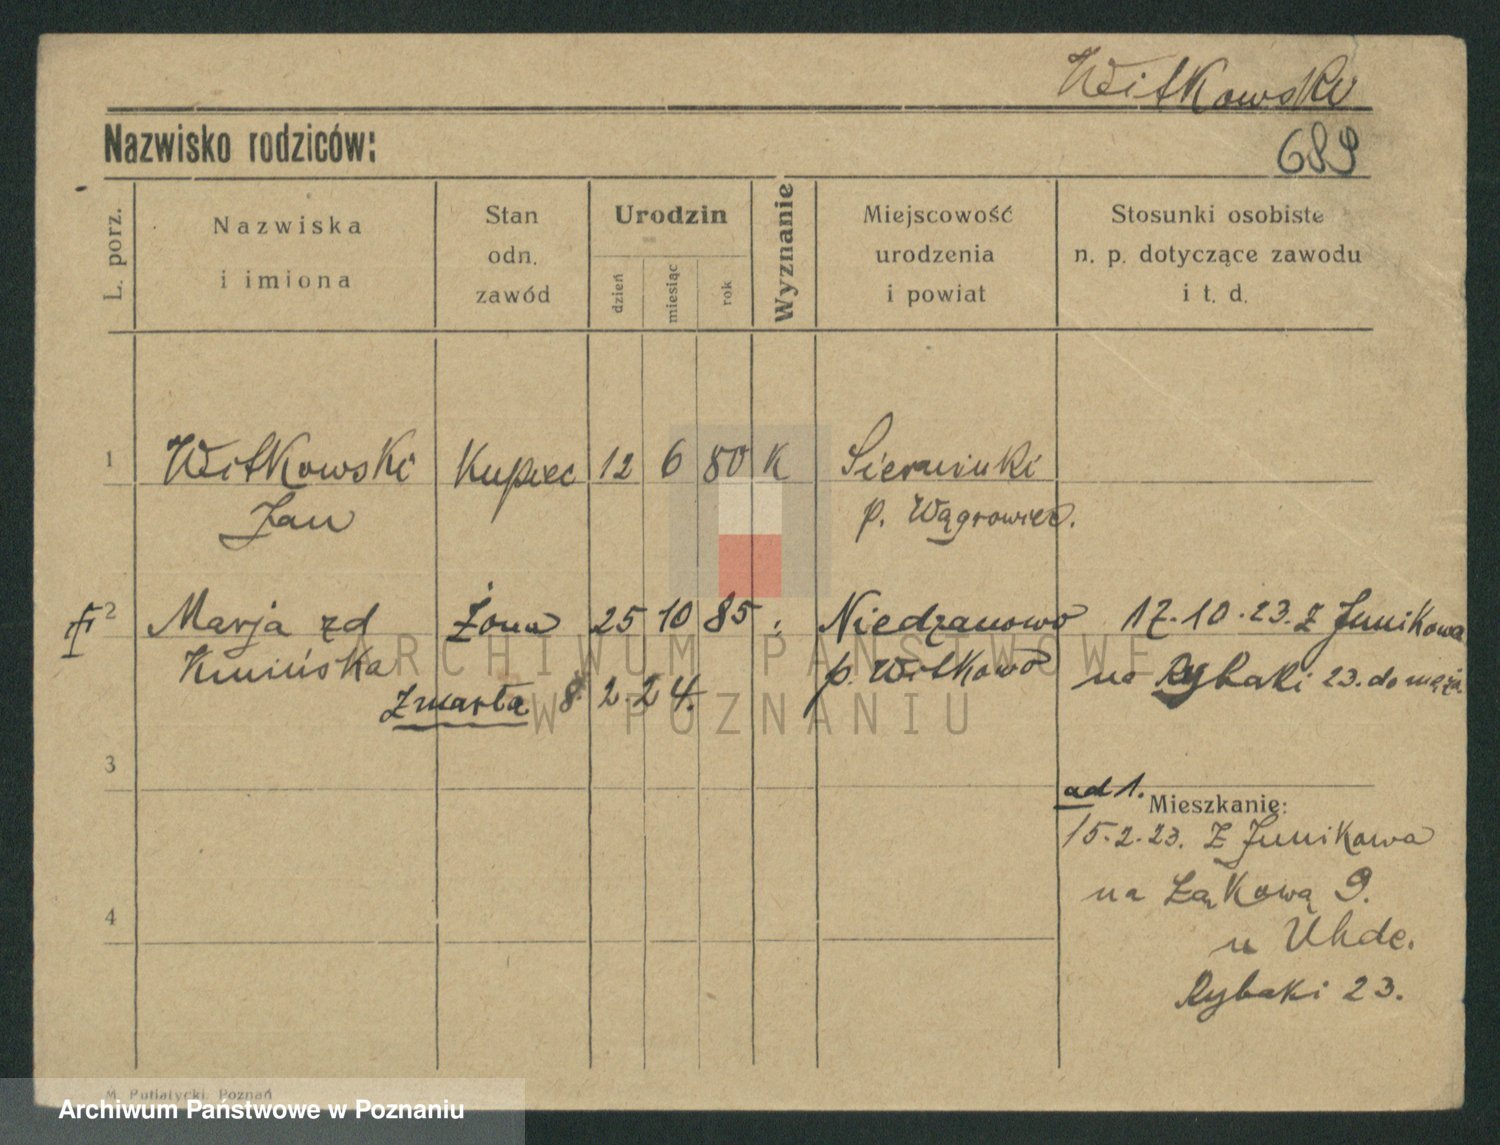 Witkowski
Nazwisko rodziców:
689
L. porz.
Nazwiska
i imiona
Stan
odn.
zawód
Urodzin
dzień
miesiąc
rok
Wyznanie
Miejscowość
urodzenia
i powiat
Stosunki osobiste
n. p. dotyczące zawodu
i t. d.
1
Witkowski Kupiec 12 6 80 K
Jan
p. Wągrowiec.
2
Marja zd Żona 25 10 85 Niedzanowo 17.10.23. z Junikowa
p. Witkowo na Rybaki 23. do męża
Zmarła 8. 2. 24.
3
ad 1.
Mieszkanie:
15.2.23. z Junikowa
na Łąkową 9.
u Uhde.
Rybaki 23.
4
M. Putiatycki, Poznań
ARCHIWUM PAŃSTWOWE
W POZNANIU
Archiwum Państwowe w Poznaniu